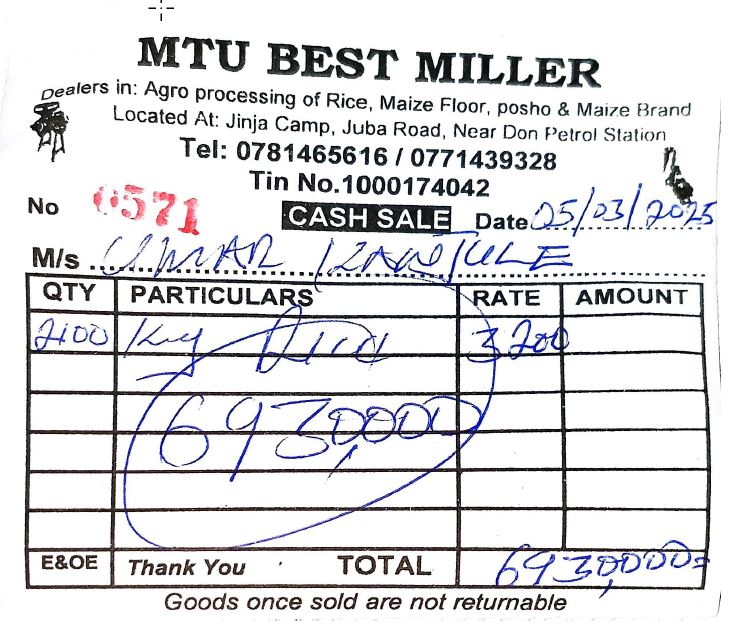 MTU BEST MILLER
Dealers in: Agro processing of Rice, Maize Floor, posho & Maize Brand
Located At: Jinja Camp, Juba Road, Near Don Petrol Station
Tel: 0781465616 / 0771439328
Tin No.1000174042
No 0571 CASH SALE Date 05/03/2025
M/s UMAR
QTY PARTICULARS RATE AMOUNT
2100 Kg Rice 3200
6930,000
E&OE Thank You TOTAL 6930,000=
Goods once sold are not returnable